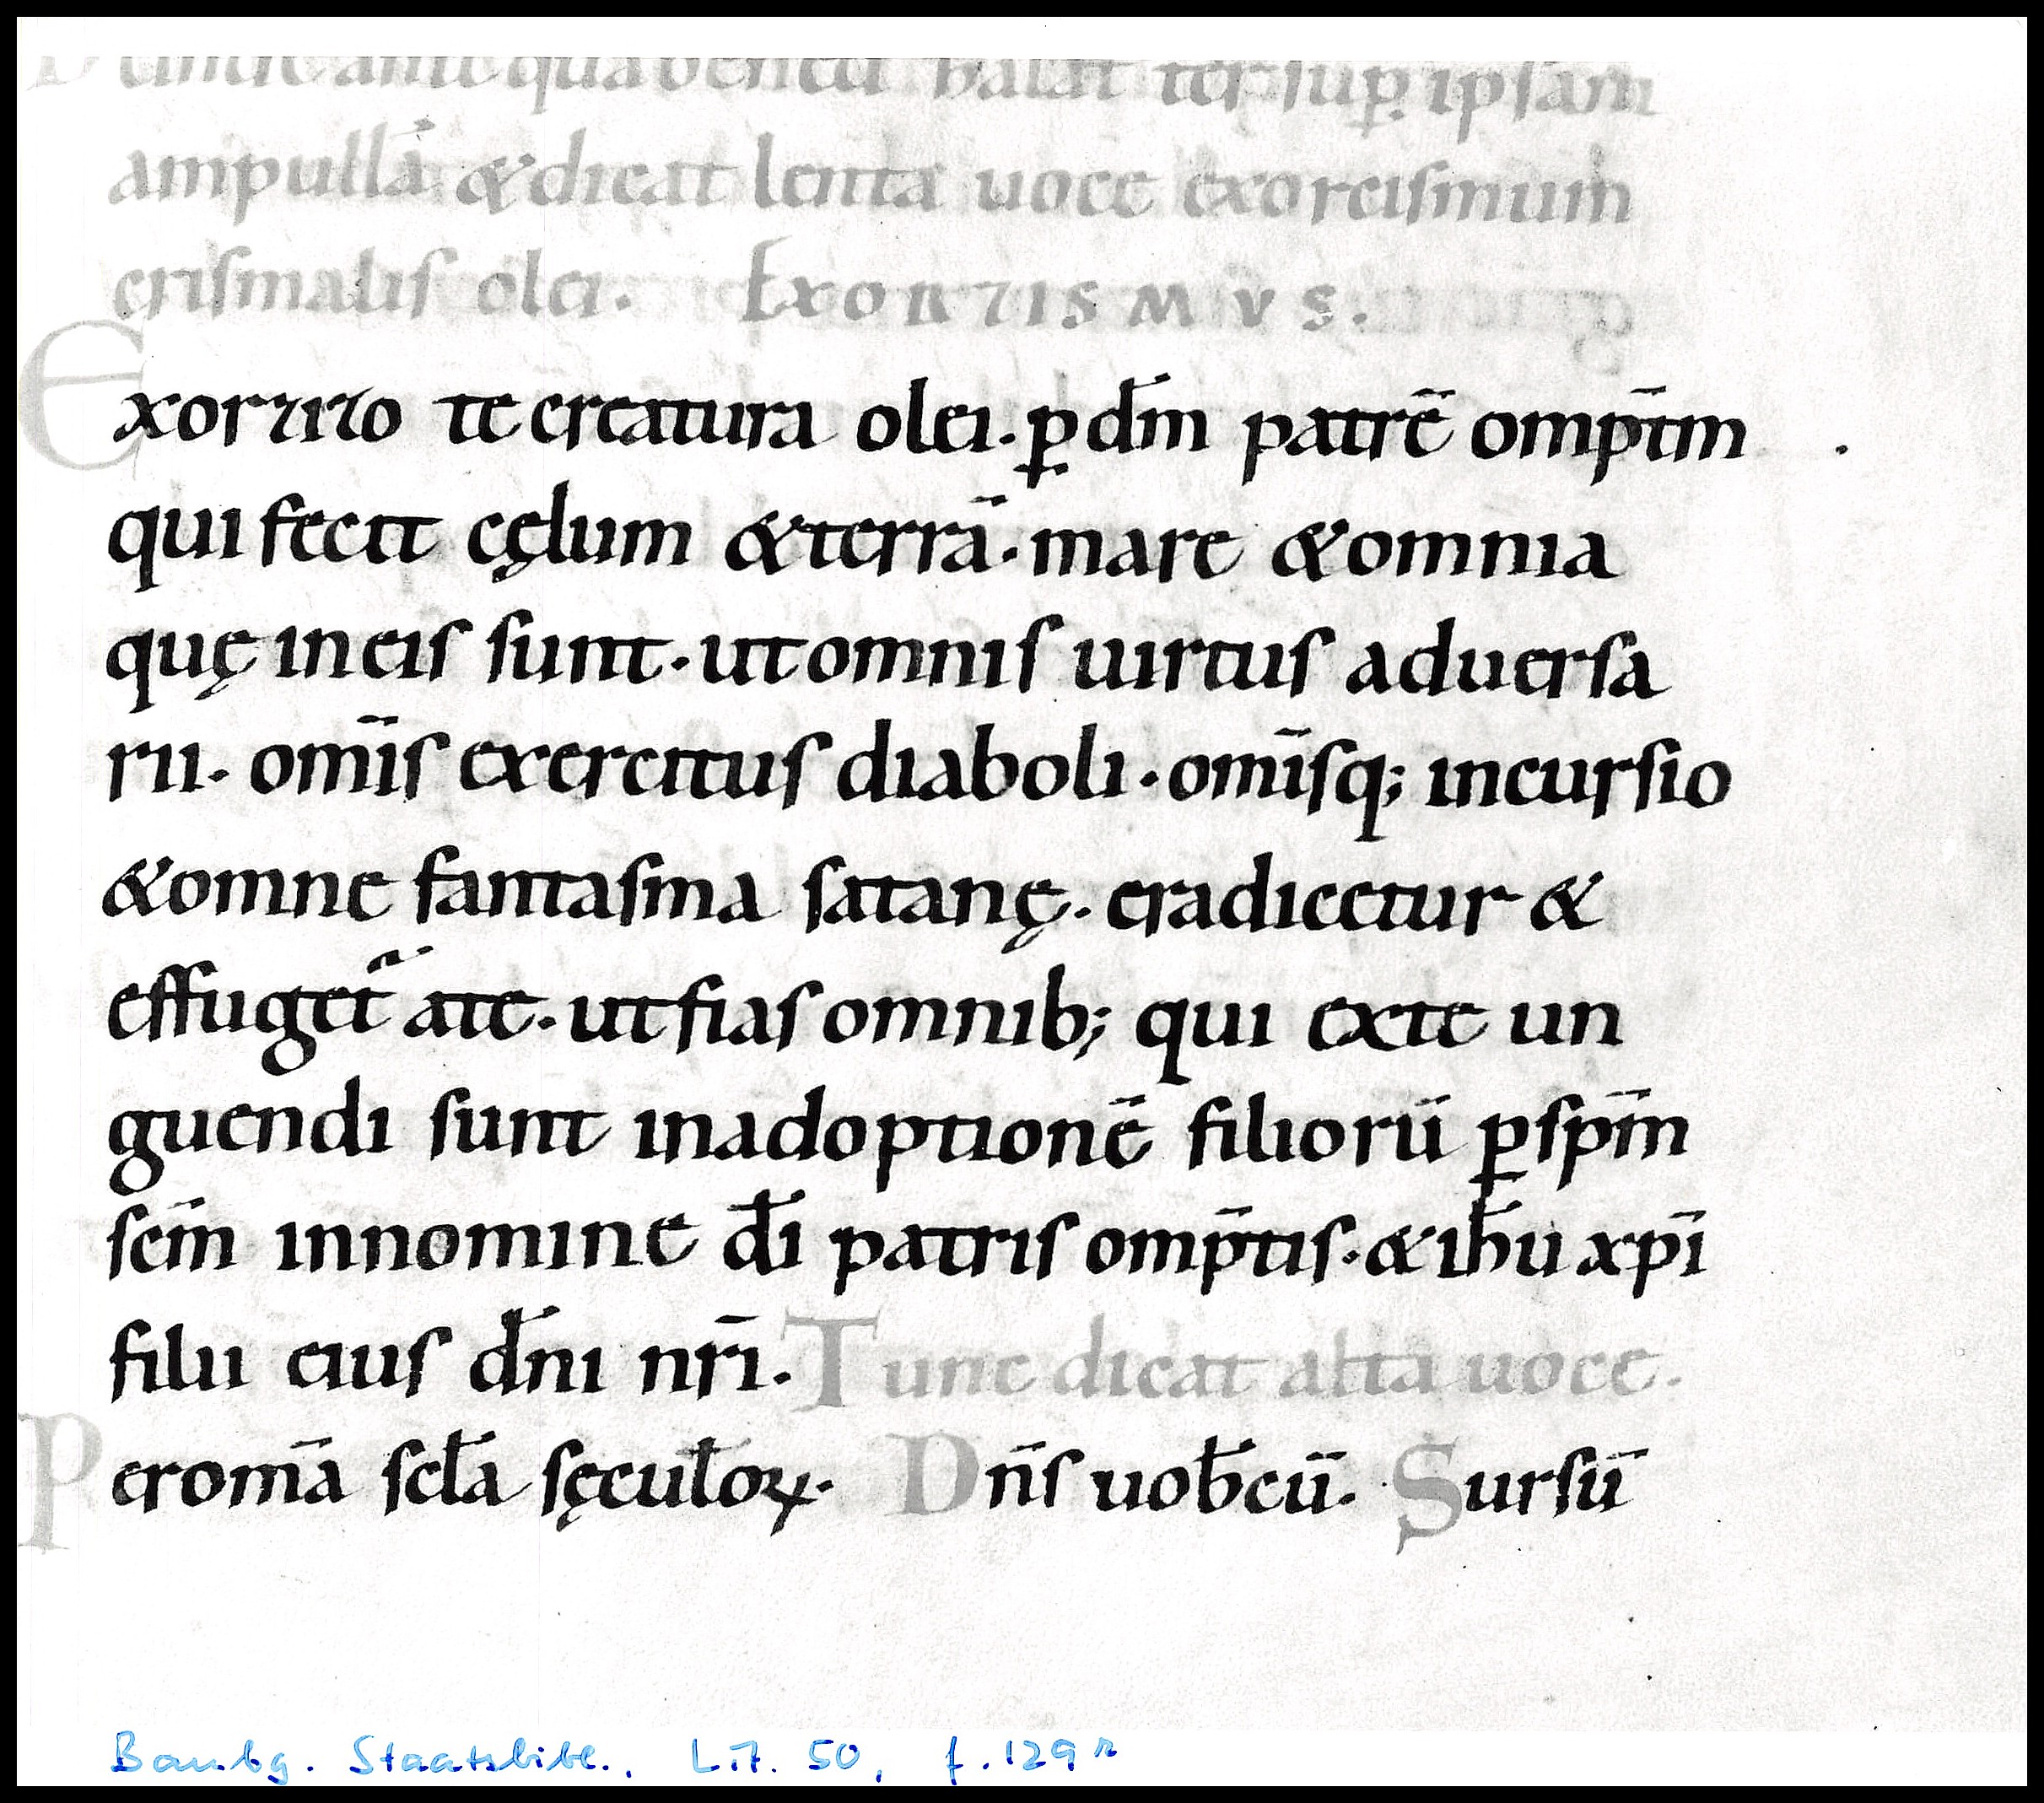 Deinde antequā benedicat halat ter sup̄ ipsam
ampullā &dicat lenta uoce exorcismum
crismalis olei. EXORZISMVS.
Exorzizo te creatura olei. ꝑ dm̄ patrē omp̄tm
qui fecit cęlum &terrā. mare &omnia
quę in eis sunt. ut omnis uirtus aduersa
rii. om̄is exercitus diaboli. om̄isq; incursio
&omne fantasma satanę. eradicetur &
effuget᷑ a te. ut fias omnib; qui ex te un
guendi sunt in adoptionē filiorū ꝑ spm̄
scm̄ in nomine dī patris omp̄tis. & ihū xp̄i
filii eius dn̄i nr̄i. Tunc dicat alta uoce.
Per om̄a scl̄a sęcul̄oꝝ. Dn̄s uob̄cū. Sursū
Bambg. Staatsbibl., Lit. 50, f. 129r